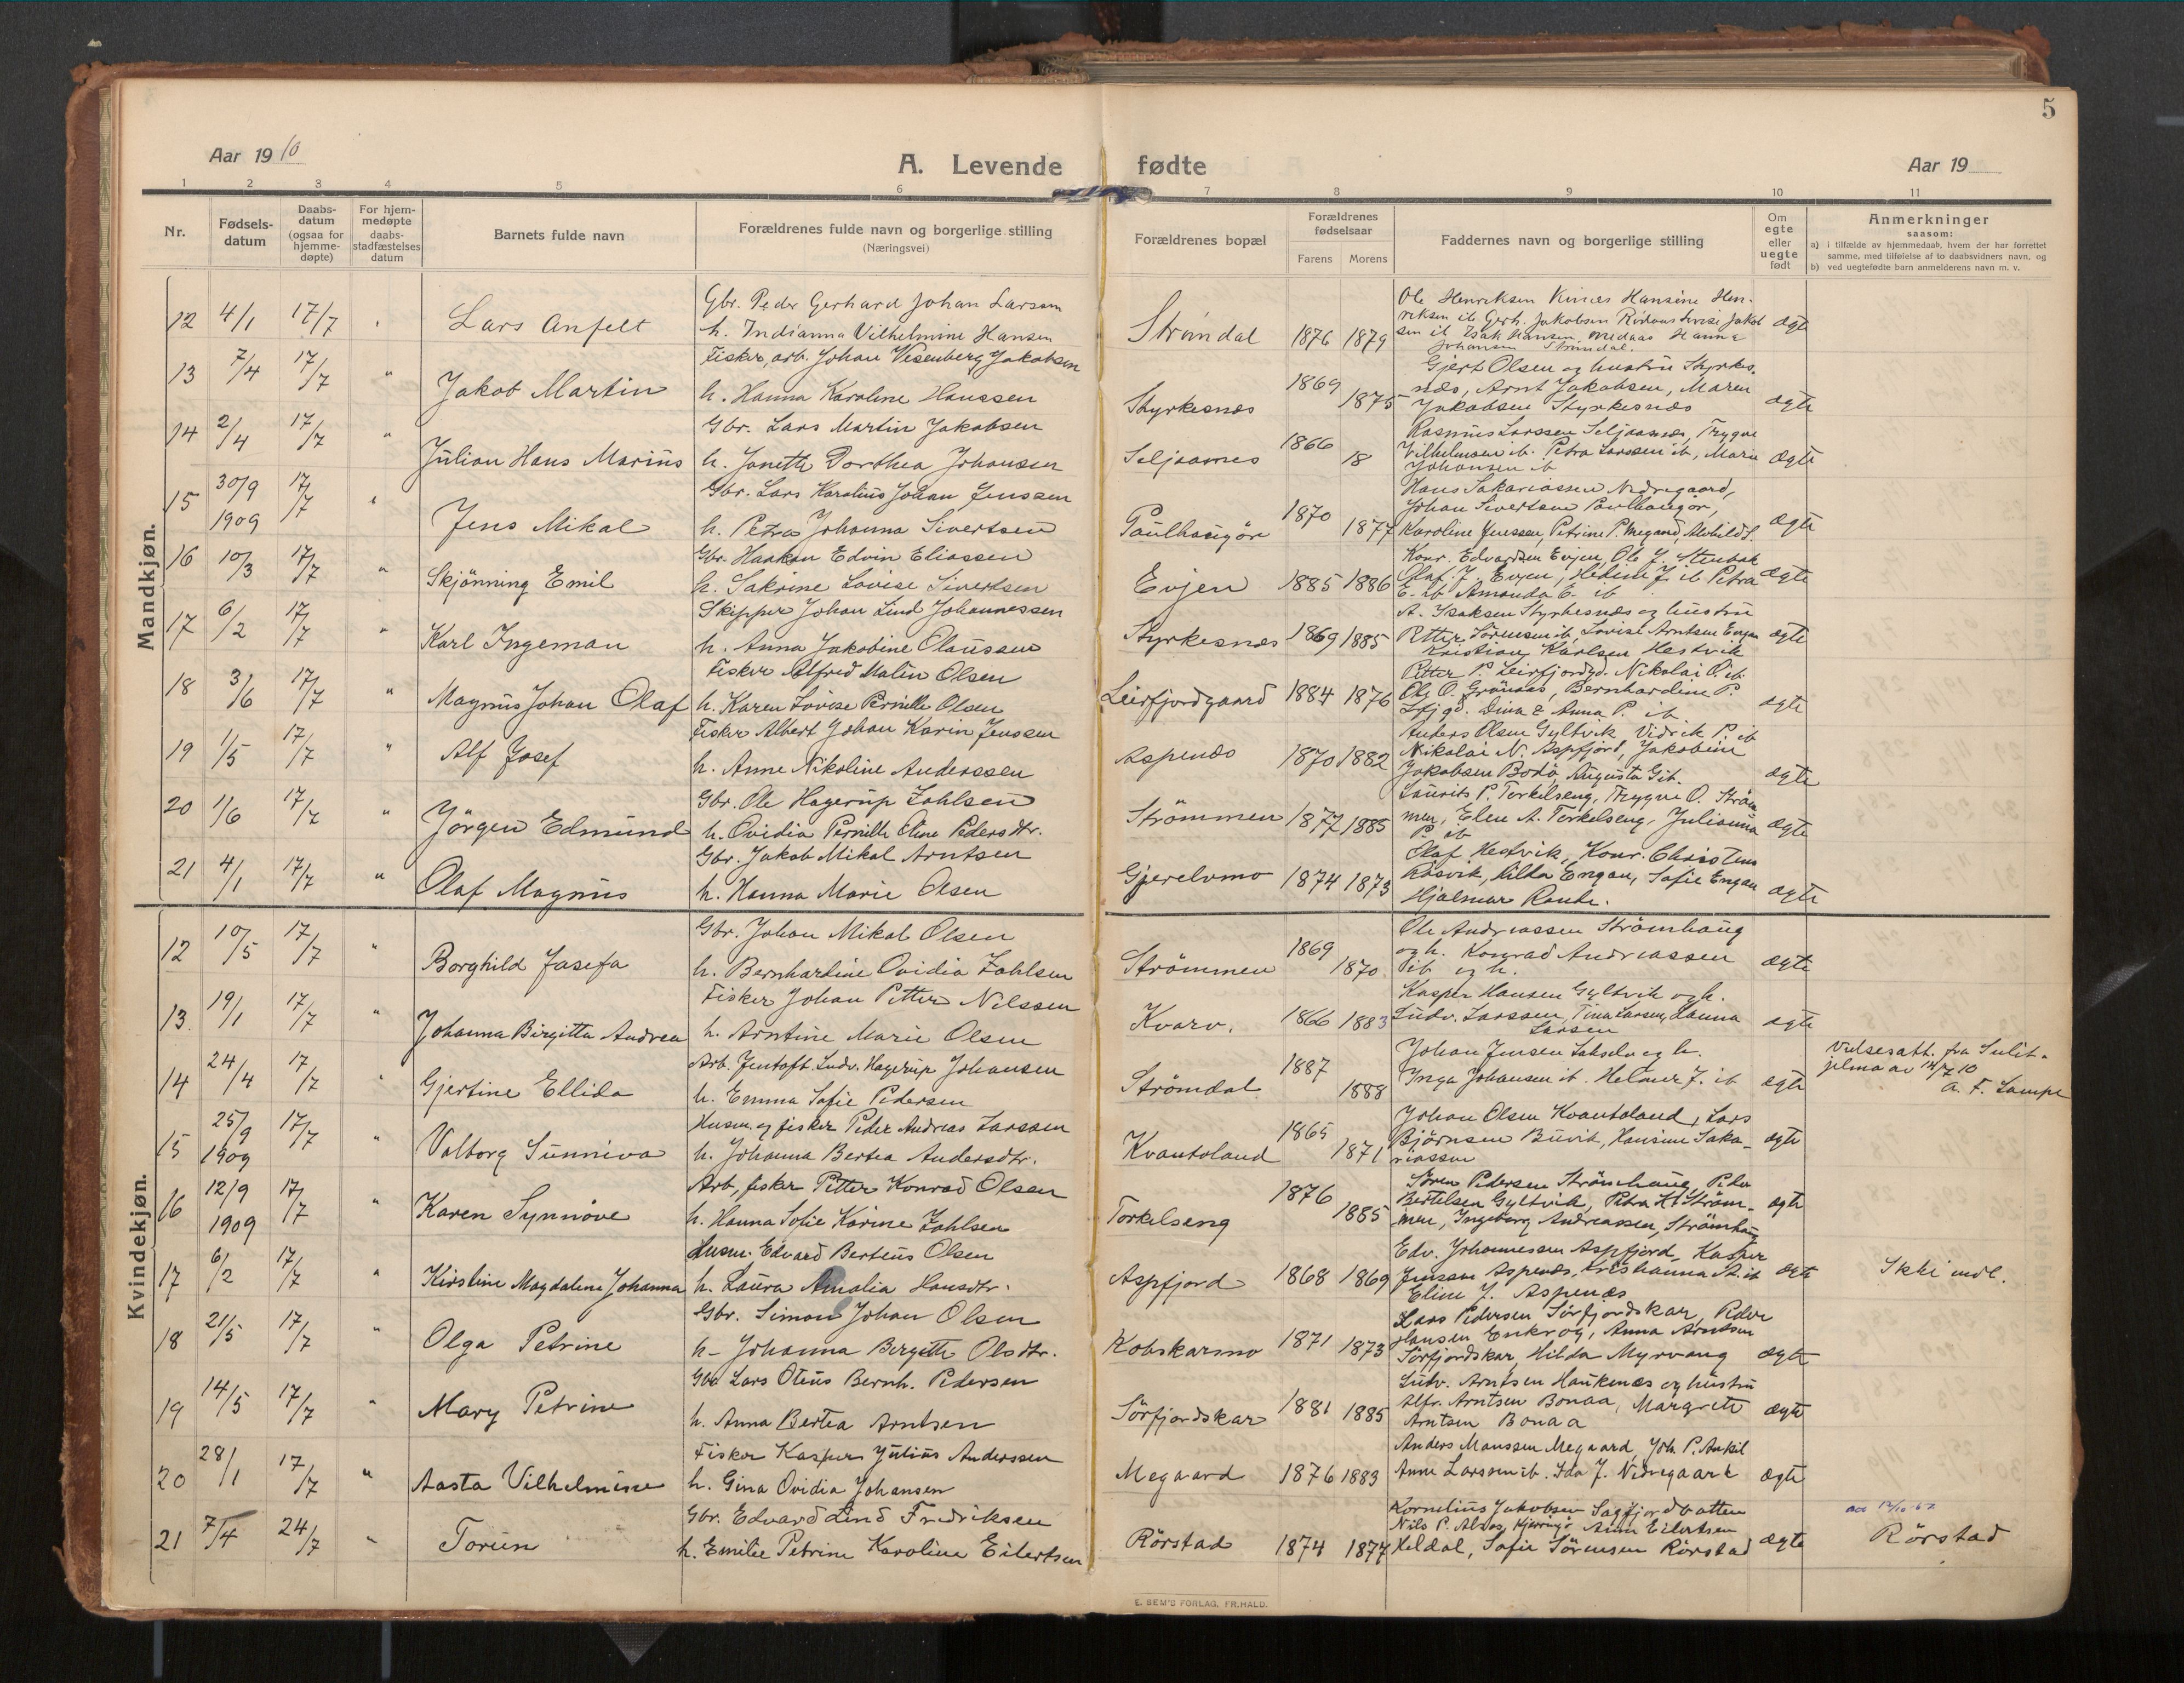 5
Aar 1910
A. Levende fødte
Aar 19
1 2 3 4 5 6 7 8 9 10 11
Nr.
Fødsels-
datum
Daabs-
datum
(ogsaa for
hjemme-
døpte)
For hjem-
medøpte
daabs-
stadfæstelses
datum
Barnets fulde navn
Forældrenes fulde navn og borgerlige stilling
(Næringsvei)
Forældrenes bopæl
Forældrenes
fødselsaar
Farens Morens
Faddernes navn og borgerlige stilling
Om
egte
eller
uegte
født
Anmerkninger
saasom:
a) i tilfælde av hjemmedaab, hvem der har forrettet
samme, med tilføielse af to daabsvidners navn, og
b) ved uegtefødte barn anmelderens navn m. v.
Mandkjøn.
12 4/1 17/7 Lars Anfelt
Gbr. Peder Gerhard Johan Larsen
h. Indianna Vilhelmine Hansen
Strømdal 1876 1879
Ole Henriksen Kines Hansine Hen-
riksen ib Gerh. Jakobsen Lovise Jakob
sen ib Isak Hansen Hanna
Johansen Strømdal.
ægte
13 7/4 17/7 " Jakob Martin
Fisker, arb. Johan Vesenberg Jakobsen
h. Hanna Karoline Hanssen
Styrkesnes 1869 1875
Gjert Olsen og hustru Styrkes-
næs, Arnt Jakobsen, Maren
Jakobsen Styrkesnæs
ægte
14 2/4 17/7 " Julian Hans Marius
Gbr. Lars Martin Jakobsen
h. Janette Dorthea Johansen
Seljaasnes 1866 18
Rasmus Larssen Seljaasnes, Trygve
Vilhelmsen ib. Petra Larssen ib, Marie
Johansen ib
ægte
15 30/9 1909 17/7 " Jens Mikal
Gbr. Lars Karolius Johan Jenssen
h. Petra Johanna Sivertsen
Paulhaugør 1870 1877
Hans Sakariassen Nedregaard,
Johan Sivertsen Paulhaugør,
Karoline Jenssen, Petrine P. Megaard,
ægte
16 10/3 17/7 " Skjönning Emil
Gbr. Haakon Edvin Eliassen
h. Sakrine Lovise Sivertsen
Evjen 1885 1886
Konr. Edvardsen Evjen, Ole J. Stenbak
Olaf. J. Evjen, Hedevig J. ib Petra
E. ib Amanda E. ib
ægte
17 6/2 17/7 " Karl Ingeman
Skipper Johan Lind Johannessen
h. Anna Jakobine Olaussen
Styrkesnes 1869 1885
A. Isaksen Styrkesnæs og hustru
Petter Sörensen ib, Lovise Arntsen Engan
Kristian Karlsen Hestvik
ægte
18 3/6 17/7 " Magnus Johan Olaf
Fisker Alfred Malin Olsen
h. Karen Lovise Pernille Olsen
Leirfjordgaard 1884 1876
Petter P. Leirfjordgd. Nikolai O. ib.
Ole O. Grönaas, Bernhardine P.
Lfjgd. Dina & Anna P. ib
ægte
19 1/5 17/7 " Alf Josef
Fisker Albert Johan Karin Jenssen
h. Anne Nikoline Anderssen
Aspenes 1870 1882
Anders Olsen Gyltvik Vidrik P. ib
Nikolai N. Aspfjord, Jakobine
Jakobsen Bodö, Augusta G ib.
ægte
20 1/6 17/7 " Jörgen Edmund
Gbr. Ole Hagerup Zahlsen
h. Ovidia Pernille Eline Pedersdtr.
Strömmen 1877 1885
Laurits P. Torkelseng, Trygve O. Ström
men, Elen A. Torkelseng, Julianna
P. ib
ægte
21 4/1 17/7 " Olaf Magnus
Gbr. Jakob Mikal Arntsen
h. Hanna Marie Olsen
Gjerelvmo 1874 1873
Olaf Hestvik, Konr. Christens
Røsvik, Alida Engan, Sofie Engan
Hjalmar Ranke.
ægte
Kvindekjøn.
12 10/5 17/7 " Borghild Josefa
Gbr. Johan Mikal Olsen
h. Bernhartine Ovidia Zahlsen
Strömmen 1869 1870
Ole Andreassen Strömhaug
og h. Konrad Andreassen
ib og h.
ægte
13. 19/1 17/7 " Johanna Birgitta Andrea
Fisker Johan Petter Nilssen
h. Arntine Marie Olsen
Kvarv. 1866 1883
Kasper Hansen Gyltvik og h.
Ludv. Larssen, Tina Larsen, Hanna
Larsen
ægte
14 24/4 17/7 " Gjertine Ellida
Arb. Jentoft Ludv. Hagerup Johansen
h. Emma Sofie Pedersen
Strömdal. 1887 1888
Johan Jensen og h.
Inga Johansen ib. Helmer J. ib
ægte
Vielsesatt. fra Sulit-
jelma av 14/7 10
A. F. Lampe
15 25/9 1909 17/7 " Valborg Sunniva
Husm. og fisker Peder Andreas Larssen
h. Johanna Bertea Andersdtr.
Kvantoland 1865 1871
Johan Olsen Kvantoland, Lars
Björnsen Buvik, Hansine Saka-
riassen
ægte
16 12/9 1909 17/7 " Karen Synnöve
Arb, fisker Petter Konrad Olsen
h. Hanna Sofie Karine Zahlsen
Torkelseng 1876 1885
Sören Pedersen Strömhaug, Peder
Bertelsen Gyltvik, Petra H. Ström-
men, Ingeborg Andreassen, Strömhaug
ægte
17 6/2 17/7 " Kirstine Magdalene Johanna
Husm. Edvard Berteus Olsen
h. Laura Amalia Hansdtr.
Aspfjord 1868 1869
Edv. Johannessen Aspfjord, Kasper
Jenssen Aspenæs, Kristianna A. ib
Eline J. Aspenæs
ægte
Ikke indl.
18 21/5 17/7 " Olga Petrine
Gbr. Simon Johan Olsen
h- Johanna Bergitte Olsdtr.
Kobskarsmo 1871 1873
Lars Pedersen Sörfjordskar, Peder
Hansen Enkrog, Anna Arntsen
Sörfjordskar, Hilda Myrvang
ægte
19 14/5 17/7 " Mary Petrine
Gbr Lars Oteus Bernh. Pedersen
h. Anna Bertea Arntsen
Sörfjordskar 1881 1885
Ludv. Arntsen Haukenæs og hustru
Alfr. Arntsen Bonaa, Margrete
Arntsen Bonaa
ægte
20 28/1 17/7 " Aasta Vilhelmine
Fisker Kasper Julius Anderssen
h. Gina Ovidia Johansen
Megaard 1876 1883
Anders Monssen Megaard, Joh. P. Ankil
Anne Larssen ib. Ida J. Nedregaard
ægte
21 7/4 24/7 " Torun
Gbr. Edvard Lind Fredriksen
h. Emilie Petrine Karoline Eilertsen
Rörstad 1874 1877
Kornelius Jakobsen Sagfjordbotten
Nils P. Alsos, Kjerringö Anne Eilertsen
Heldal, Sofie Sörensen Rörstad
ægte
Rörstad
E. SEM'S FORLAG, FR.HALD.